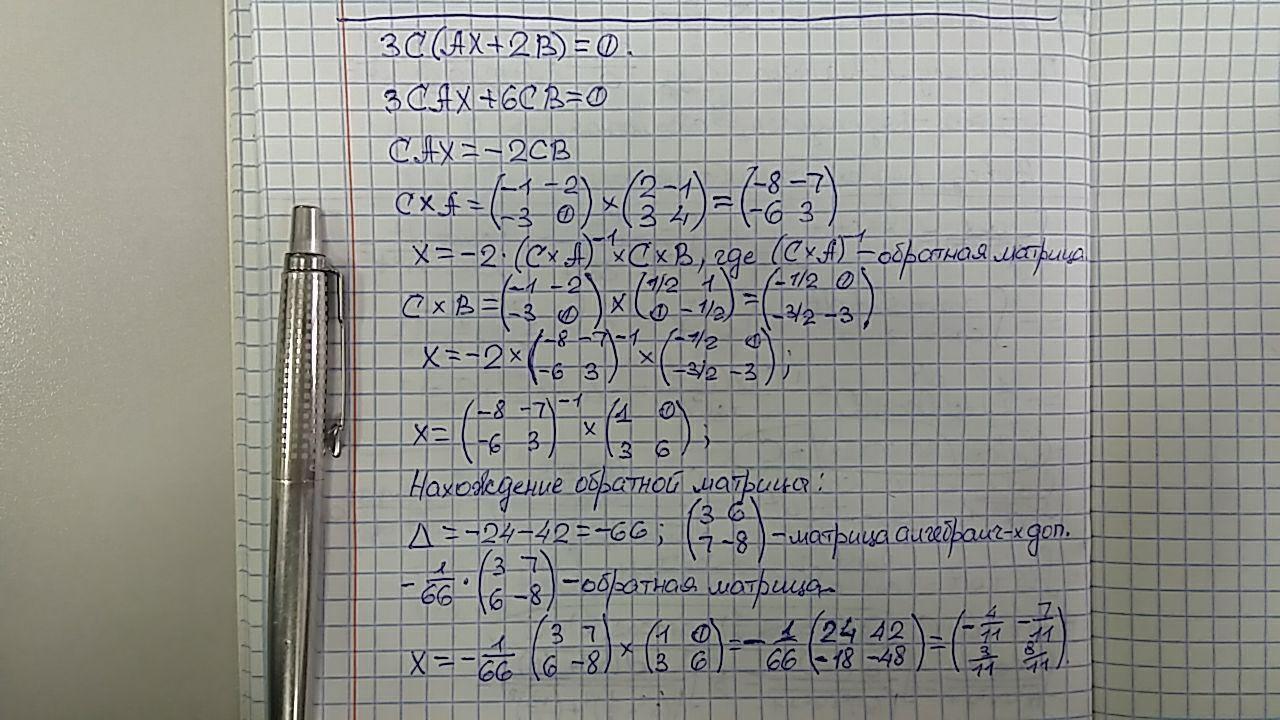 3C(AX+2B)=0.
3CAX+6CB=0
CAX=-2CB
C×A=(-1 -2; -3 0)×(2 -1; 3 4)=(-8 -7; -6 3)
X=-2·(C×A)⁻¹×C×B, где (C×A)⁻¹-обратная матрица
C×B=(-1 -2; -3 0)×(1/2 1; 0 -1/2)=(-1/2 0; -3/2 -3)
X=-2×(-8 -7; -6 3)⁻¹×(-1/2 0; -3/2 -3);
X=(-8 -7; -6 3)⁻¹×(1 0; 3 6);
Нахождение обратной матрицы:
Δ=-24-42=-66; (3 6; 7 -8)-матрица алгебраич-х доп.
-1/66·(3 7; 6 -8)-обратная матрица.
X=-1/66(3 7; 6 -8)×(1 0; 3 6)=-1/66(24 42; -18 -48)=(-4/11 -7/11; 3/11 8/11).